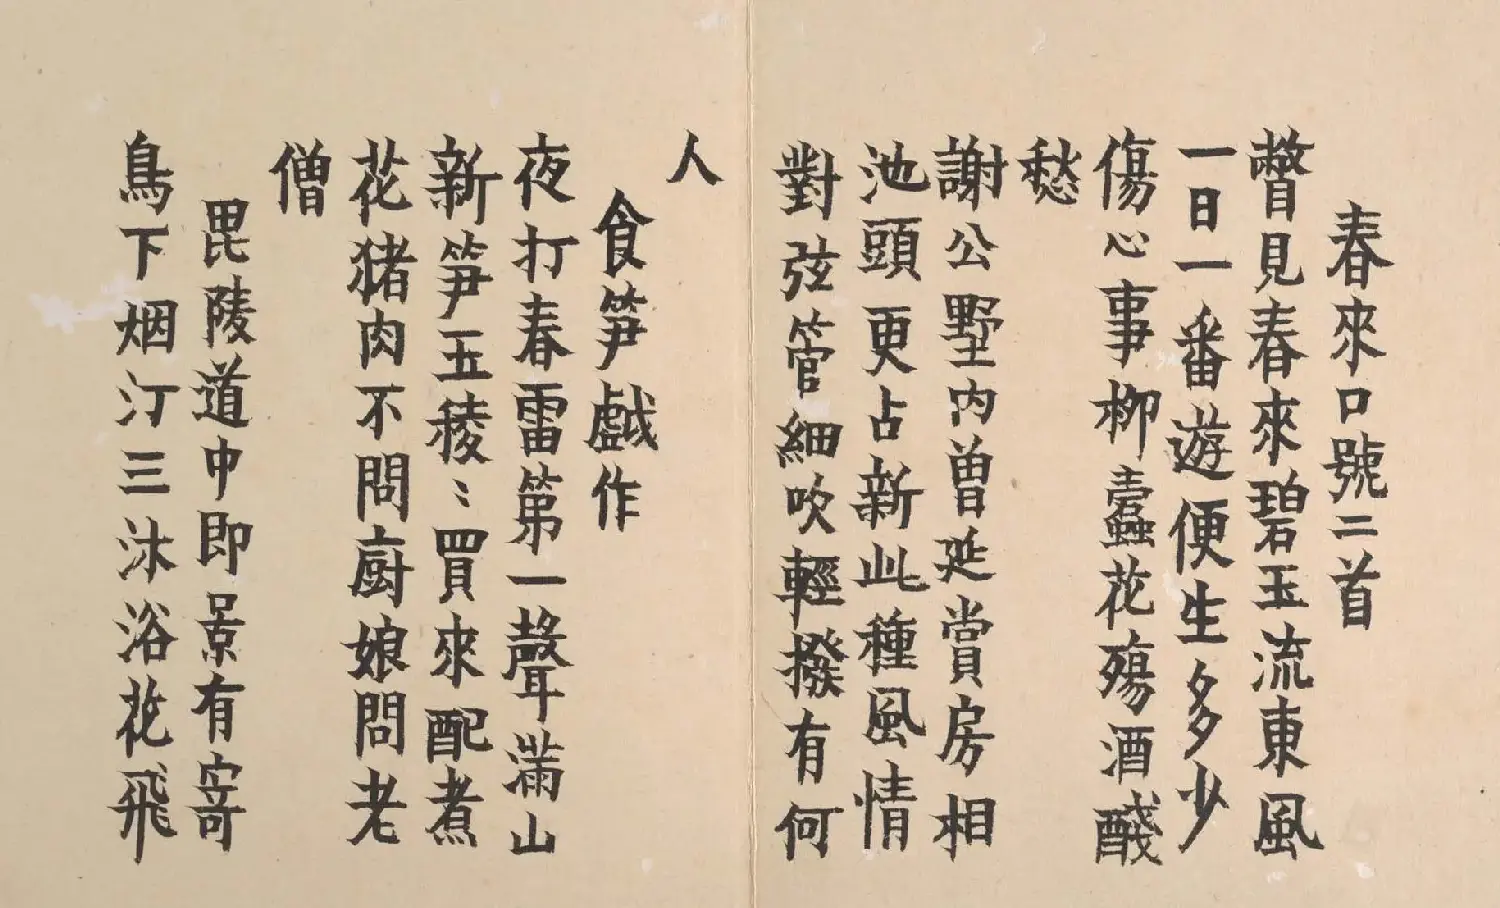 春來口號二首
瞥見春來碧玉流東風
一日一番遊便生多少
傷心事柳蠹花殤酒醆
愁
謝公墅內曾延賞房相
池頭更占新此種風情
對弦管細吹輕撥有何
人
食笋戲作
夜打春雷第一聲滿山
新笋玉稜〻買來配煮
花猪肉不問廚娘問老
僧
毘陵道中即景有寄
鳥下烟汀三沐浴花飛